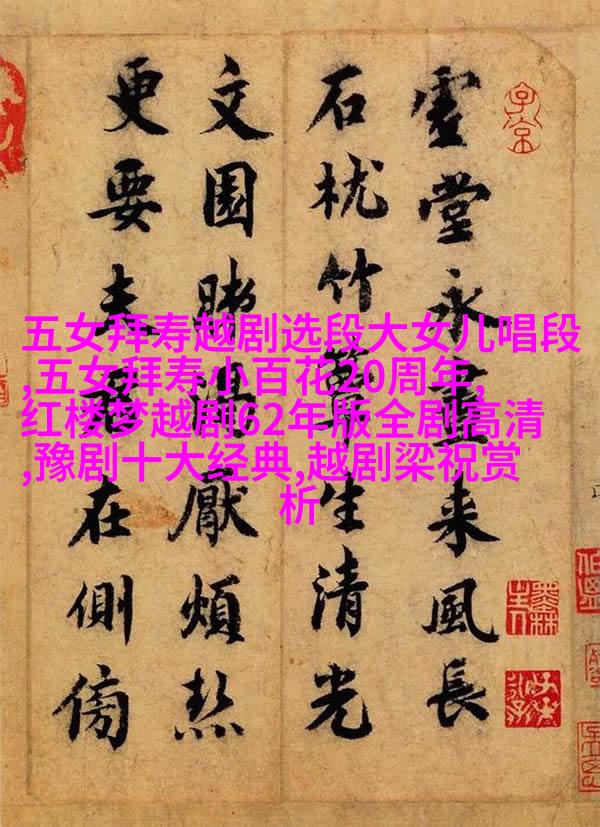 堂永来風長
石枕竹簟生清光
文園厭煩熱
更要在側傍
五女拜寿越剧选段大女儿唱段
,五女拜寿小百花20周年,
红楼梦越剧62年版全剧高清
,豫剧十大经典,越剧梁祝赏
析